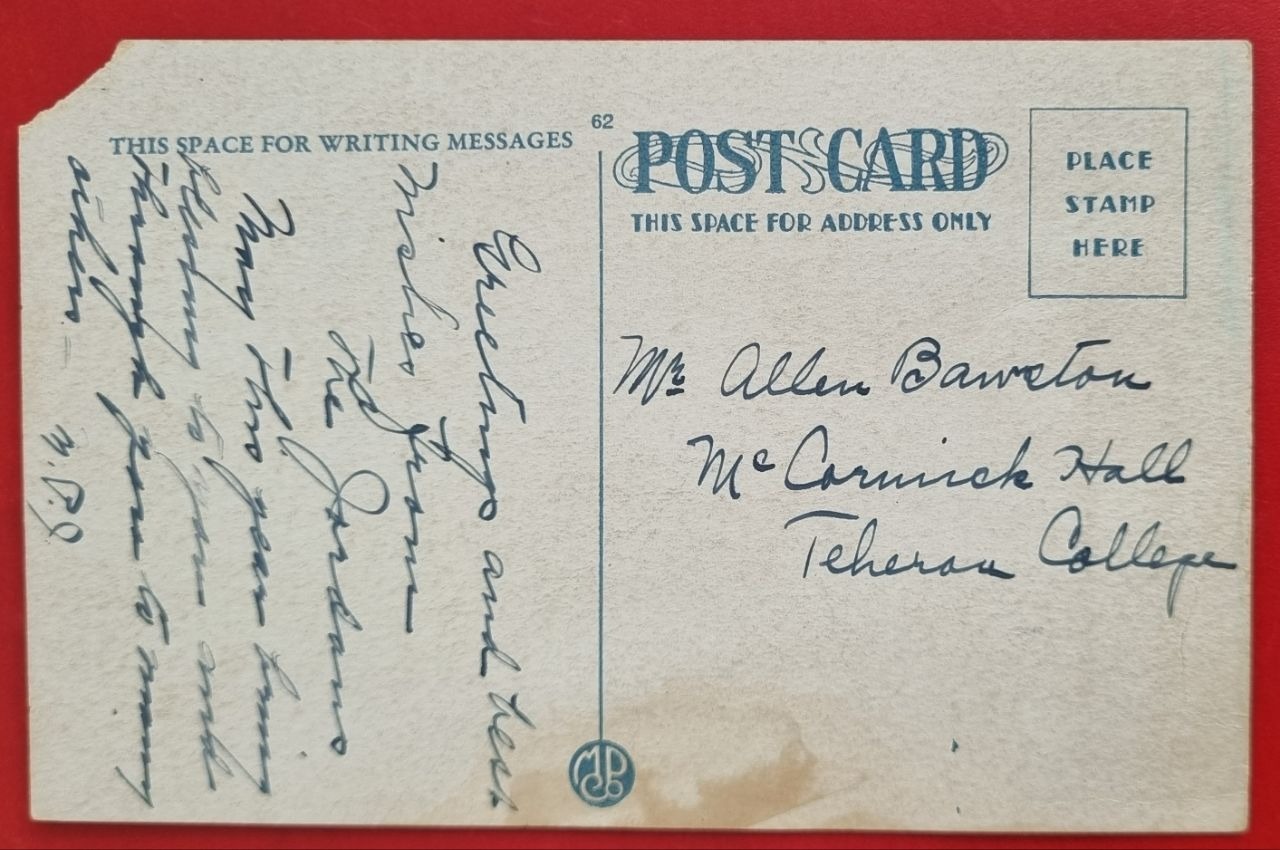 THIS SPACE FOR WRITING MESSAGES
Greetings and best
wishes from
the Jordans
May this year bring
blessing to you and
through you to many
others –
M. P. J.
62
POST CARD
THIS SPACE FOR ADDRESS ONLY
PLACE
STAMP
HERE
Mr Allen Bawston
McCormick Hall
Teheran College